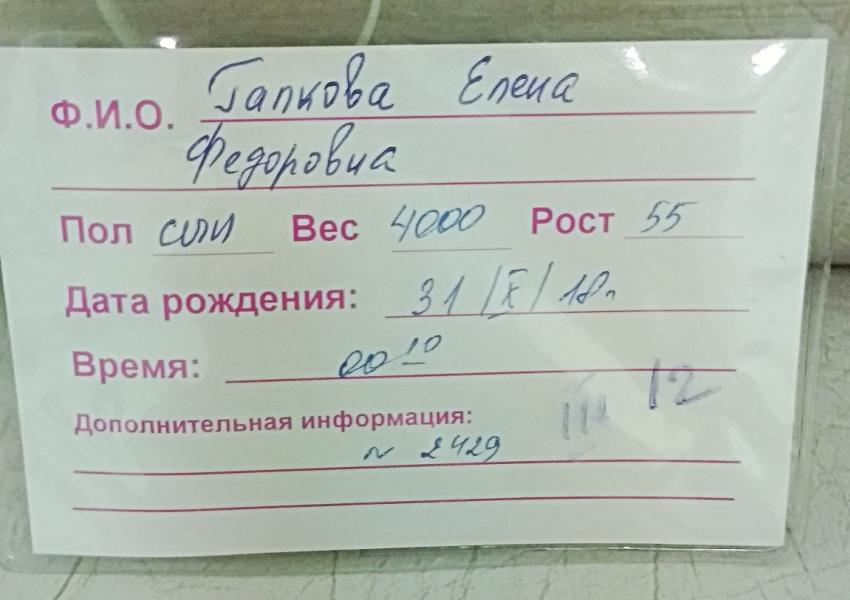 Ф.И.О. Гапкова Елена
Федоровна
Пол Вес 4000 Рост 55
Дата рождения: 31/X/18г
Время: 00 10
Дополнительная информация:
III 12
N 2429